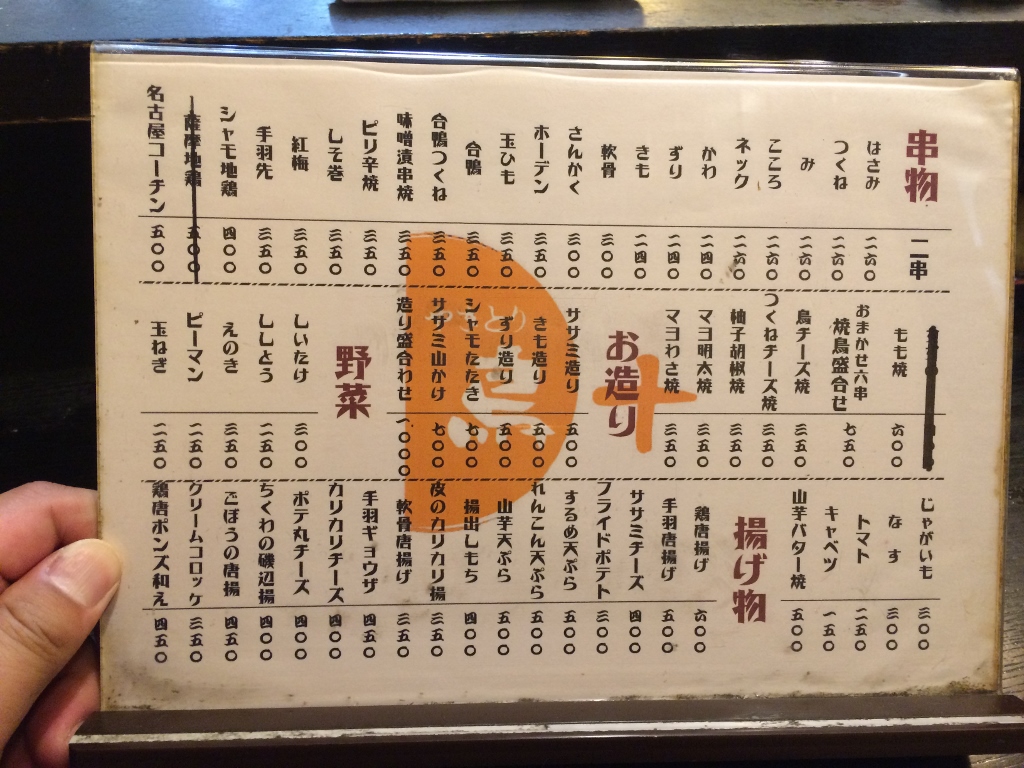 串物
二串
はさみ 二六〇
つくね 二六〇
み 二六〇
こころ 二六〇
ネック 二六〇
かわ 二四〇
ずり 二四〇
きも 二四〇
軟骨 三〇〇
さんかく 三〇〇
ホーデン 三五〇
玉ひも 三五〇
合鴨 三五〇
合鴨つくね 三五〇
味噌漬串焼 三五〇
ピリ辛焼 三五〇
しそ巻 三五〇
紅梅 三五〇
手羽先 三五〇
シャモ地鶏 四〇〇
薩摩地鶏 五〇〇
名古屋コーチン 五〇〇
もも焼 六〇〇
おまかせ六串
焼鳥盛合せ 七五〇
鳥チーズ焼 三五〇
つくねチーズ焼 三五〇
柚子胡椒焼 三五〇
マヨ明太焼 三五〇
マヨわさ焼 三五〇
お造り
ササミ造り 五〇〇
きも造り 五〇〇
ずり造り 五〇〇
シャモたたき 七〇〇
ササミ山かけ 七〇〇
造り盛合わせ 一〇〇〇
野菜
しいたけ 三〇〇
ししとう 二五〇
えのき 三五〇
ピーマン 二五〇
玉ねぎ 二五〇
じゃがいも 三〇〇
なす 三〇〇
トマト 二五〇
キャベツ 一五〇
山芋バター焼 五〇〇
揚げ物
鶏唐揚げ 六〇〇
手羽唐揚げ 五五〇
ササミチーズ 四〇〇
フライドポテト 三〇〇
するめ天ぷら 五〇〇
れんこん天ぷら 五〇〇
山芋天ぷら 五〇〇
揚出しもち 四〇〇
皮のカリカリ揚 三五〇
軟骨唐揚げ 三五〇
手羽ギョウザ 四五〇
カリカリチーズ 四〇〇
ポテ丸チーズ 四〇〇
ちくわの磯辺揚 四〇〇
ごぼうの唐揚 四五〇
クリームコロッケ 三五〇
鶏唐ポンズ和え 四五〇
やきとり